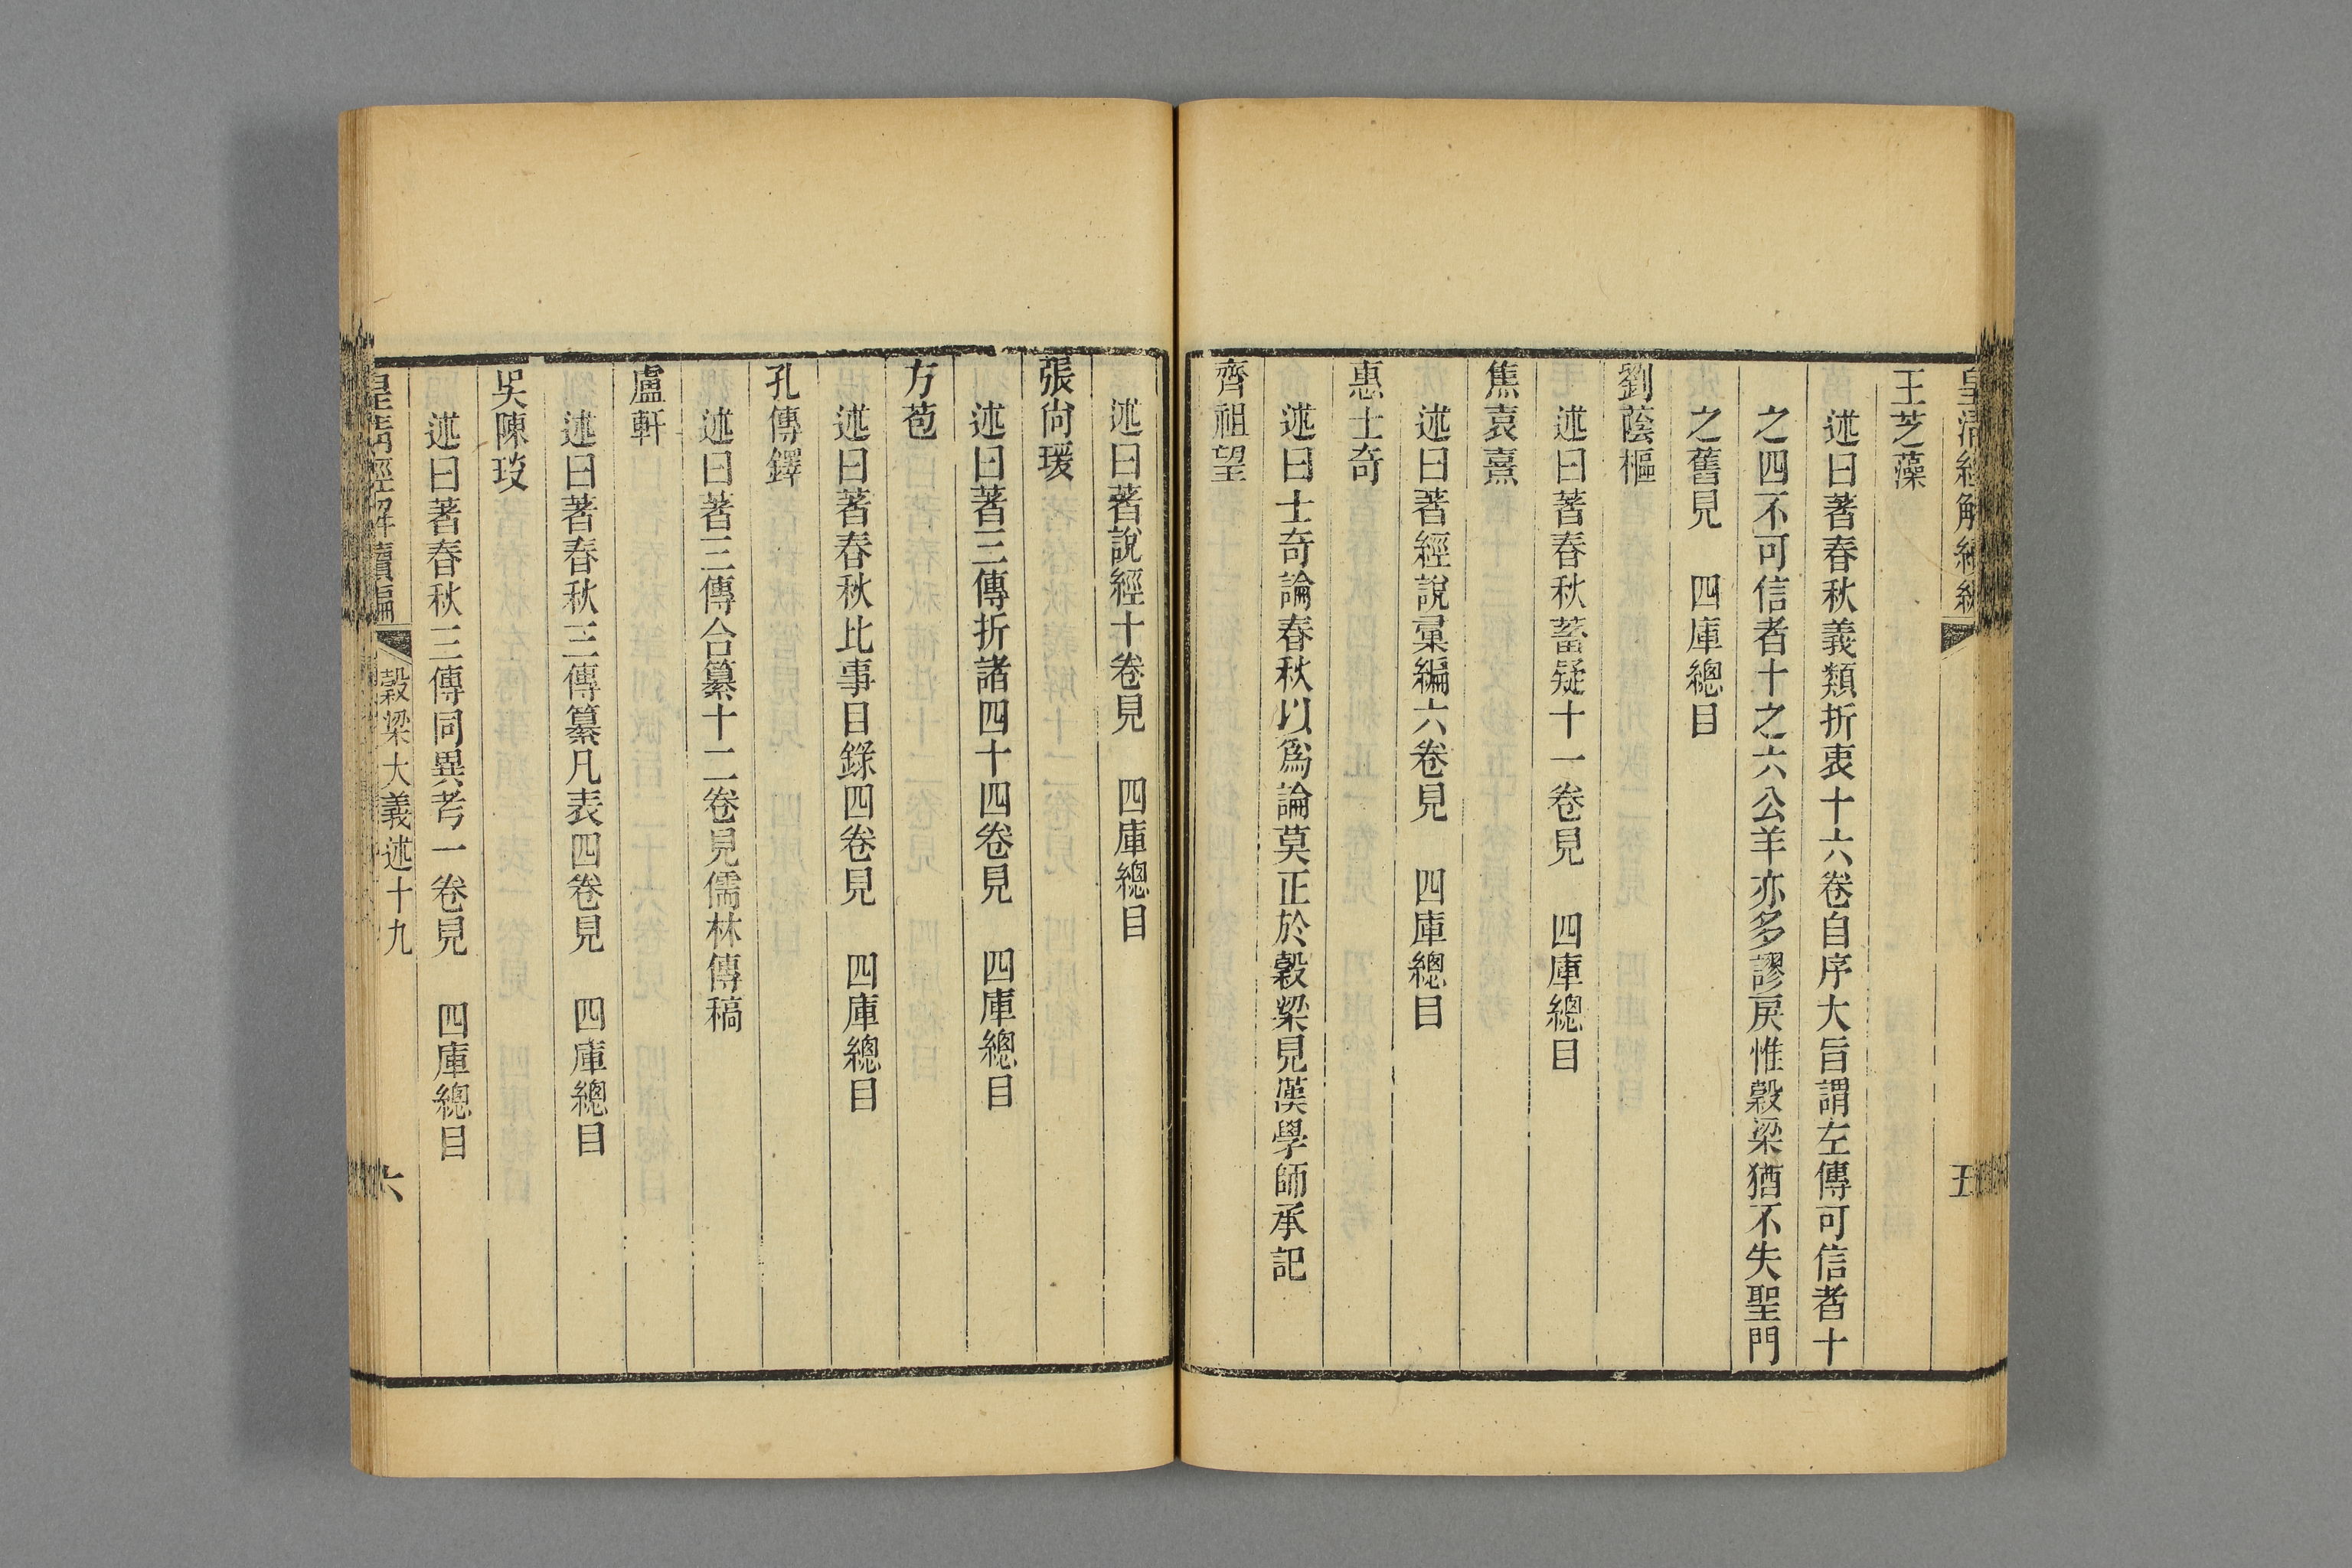 皇清經解續編
五
王芝藻
述曰著春秋義類折衷十六卷自序大旨謂左傳可信者十
之四不可信者十之六公羊亦多謬戾惟穀梁猶不失聖門
之舊見　四庫總目
劉蔭樞
述曰著春秋蓄疑十一卷見　四庫總目
焦袁熹
述曰著經說彙編六卷見　四庫總目
惠士奇
述曰士奇論春秋以爲論莫正於穀梁見漢學師承記
齊祖望
述曰著說經十卷見　四庫總目
張尙瑗
述曰著三傳折諸四十四卷見　四庫總目
方苞
述曰著春秋比事目錄四卷見　四庫總目
孔傳鐸
述曰著三傳合纂十二卷見儒林傳稿
盧軒
述曰著春秋三傳纂凡表四卷見　四庫總目
吳陳琰
述曰著春秋三傳同異考一卷見　四庫總目
皇清經解續編
穀梁大義述十九
六